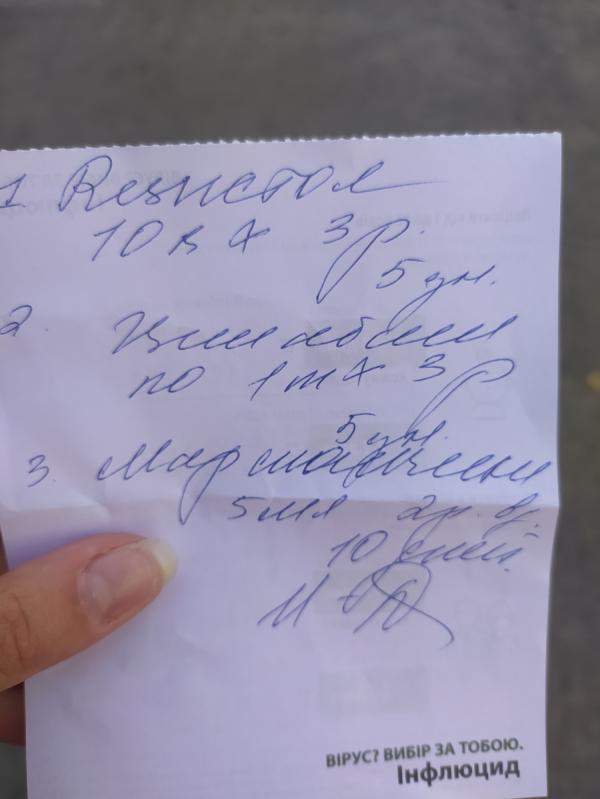 1. Резистол
10 к х 3 р.
5 дн.
2. Циннабсин
по 1 т х 3 р
5 дн.
3.
5 мл 2 р. д.
10 дней
ВІРУС? ВИБІР ЗА ТОБОЮ.
Інфлюцид